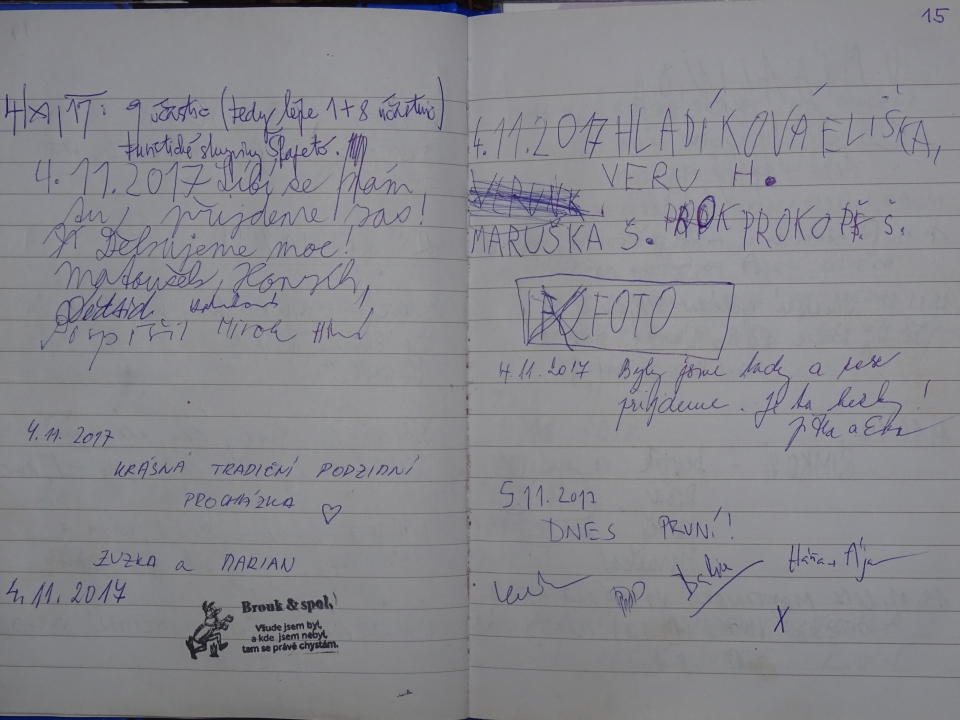 4/XI/17: 9 účastic (tedy lépe 1+8 účastnic)
funetické skupiny Špageto.
4. 11. 2017 Líbí se nám
tu, přijdeme zas!
Děkujeme moc!
Matoušek, Honzík,
4. 11. 2017
KRÁSNÁ TRADIČNÍ PODZIMNÍ
PROCHÁZKA ♡
ZUZKA a MARIAN
4. 11. 2017
Brouk & spol,
Všude jsem byl,
a kde jsem nebyl,
tam se právě chystám.
15
4.11.2017 HLADÍKOVÁ ELIŠKA,
VERU H.
MARUŠKA Š. PROKOP Š.
FOTO
4.11.2017 Byly jsme tady a zase
přijdeme. Je to hezky!
Jitka a Eva
5.11.2017
DNES PRVNÍ!
Dalia
Háňa + Ája
X